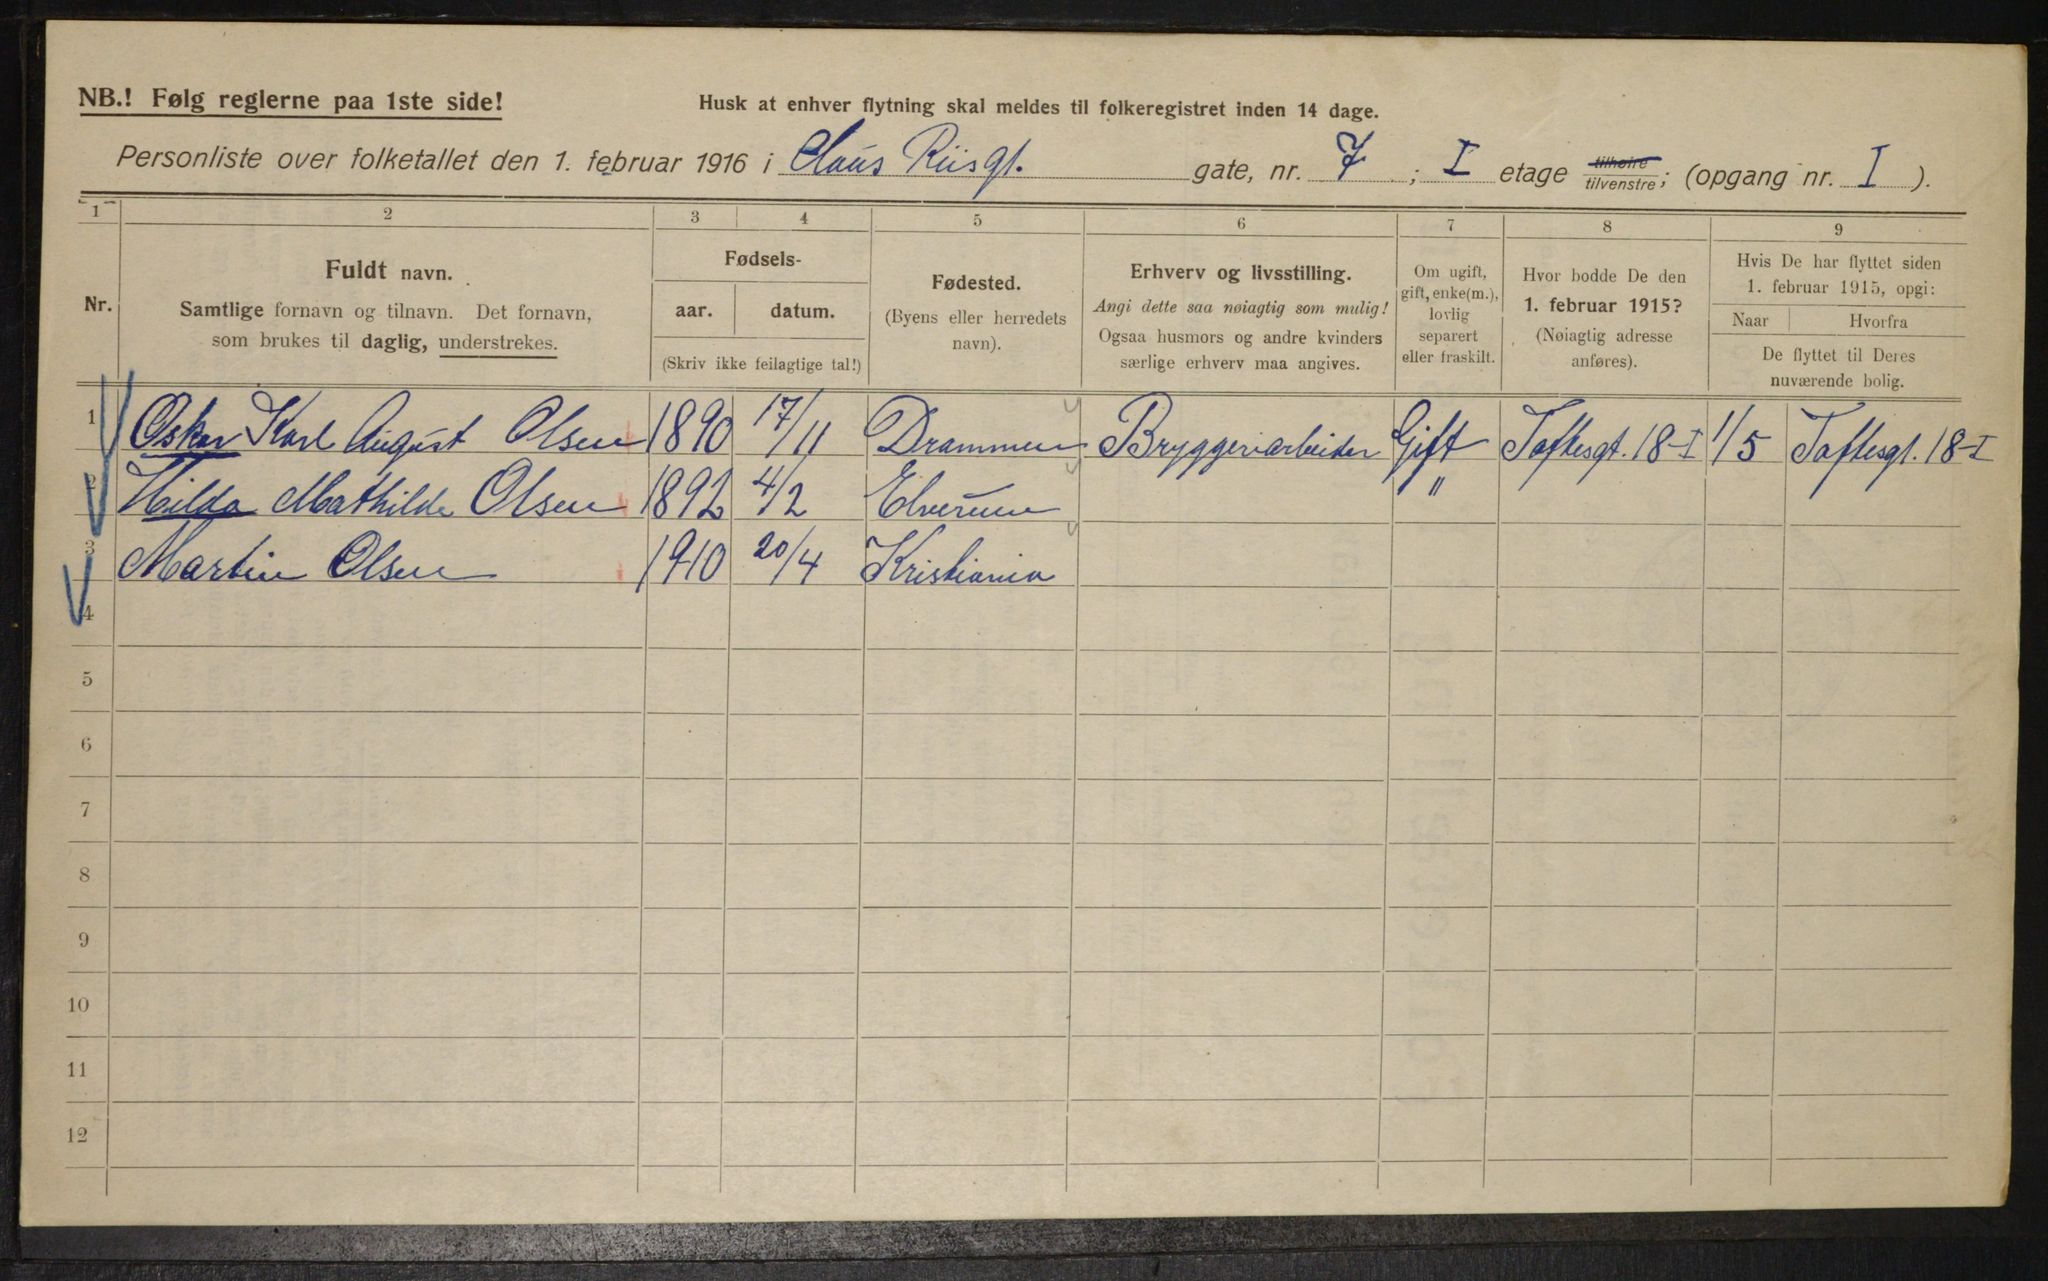 NB.! Følg reglerne paa 1ste side!
Husk at enhver flytning skal meldes til folkeregistret inden 14 dage.
Personliste over folketallet den 1. februar 1916 i Claus Riisgt. gate, nr. 7 ; I etage tilhoire tilvenstre; (opgang nr. I ).
1 2 3 4 5 6 7 8 9
Nr.
Fuldt navn.
Samtlige fornavn og tilnavn. Det fornavn,
som brukes til daglig, understrekes.
Fødsels-
aar. datum.
(Skriv ikke feilagtige tal!)
Fødested.
(Byens eller herredets
navn).
Erhverv og livsstilling.
Angi dette saa nøiagtig som mulig!
Ogsaa husmors og andre kvinders
særlige erhverv maa angives.
Om ugift,
gift, enke(m.),
lovlig
separert
eller fraskilt.
Hvor bodde De den
1. februar 1915?
(Nøiagtig adresse
anføres).
Hvis De har flyttet siden
1. februar 1915, opgi:
Naar Hvorfra
De flyttet til Deres
nuværende bolig.
1 Oskar Karl August Olsen 1890 17/11 Drammen Bryggeriarbeider Gift Toftesgt. 18-I 1/5 Toftesgt. 18-I
2 Hilda Mathilde Olsen 1892 4/2 Elverum "
3 Martin Olsen 1910 20/4 Kristiania
4
5
6
7
8
9
10
11
12